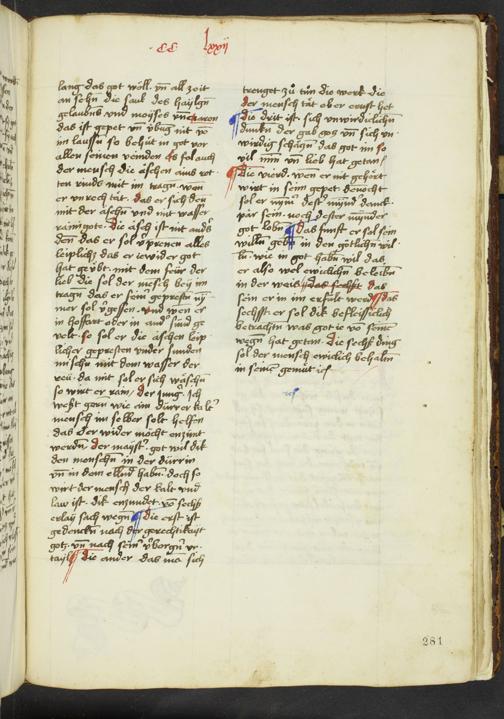 CC lxxij
lang das got woll. vn̄ all zeit
an sehn die saul des haylgn̄
gelaubns vnd moyses vnd aaron
das ist gepet vn̄ v̈bug mit
im laussn̄ so behüt in got vor
allen seinen veinden Es sol auch
der mensch die aschen aus rot
ten rinds mit im tragn. wen
er vnrech tät. das er sich den
mit der aschn̄ vnd mit wasser
rainigote. Die asch ist nit anders
den das er sol v̈prenen alles
leiplichs das er ie wider got
hat gev̈bt. mit dem feür der
lieb Die sol der mensch bey im
tragn das er sein gepresten ny̆
mer sol v̈gessen. vnd wen er
in hoffart oder in and̾ sund ge
velt. So sol er die aschen leip
licher gepresten vnder sunden
mischn mit dem wasser der
reü. da mit sol er sich wäschn̄
so wirt er rain. der jung. Ich
weßt gern wie ain dürrer kalt̾
mensch im selber solt helfen
das der wider möcht enzünt
werdn̄. der mayst̾. got wil dik
den menschn̄ in der dürrin
vn̄ in dem ellend habn̄. doch so
wirt der mensch der kalt vnd
law ist. dik enzundet. vo sechß
erlay sach wegn̄ die erst ist
gedenckn̄ nach der gerechtikayt
gotz. vn̄ nach sein̾ v̈borgn̾ vr
tayl. Die ander. das ma sich
treuget zu tün die werk die
der mensch tät ob er ernst het
Die drit ist. sich vnwirdiclichn̄
dunkn der gab gotz vn̄ sich vn
wirdig schätzn̄. das got im so
vil min̄ vn̄ lieb hat getan.
Die vierd. wen er nit gehört
wirt in seim gepet dencht
sol er nym̄er dest mynd̾ danck
pär sein. noch dester mynder
got lobn̄. das funft er sol sein
willn̄ gebn̄ in den götlichn wil
ln̄. wie in got habn̄ wil das
er also wel ewiclichn̄ beleibn̄
in der weis. das sechst. das
sein er in im erfült werd. das
sechsst er sol dik befleissiclich
betrachtn was got ie vo seine
wegn̄ hat getan. Die sechß ding
sol der mensch ewiclich behaltn̄
in seinem gemüt
281